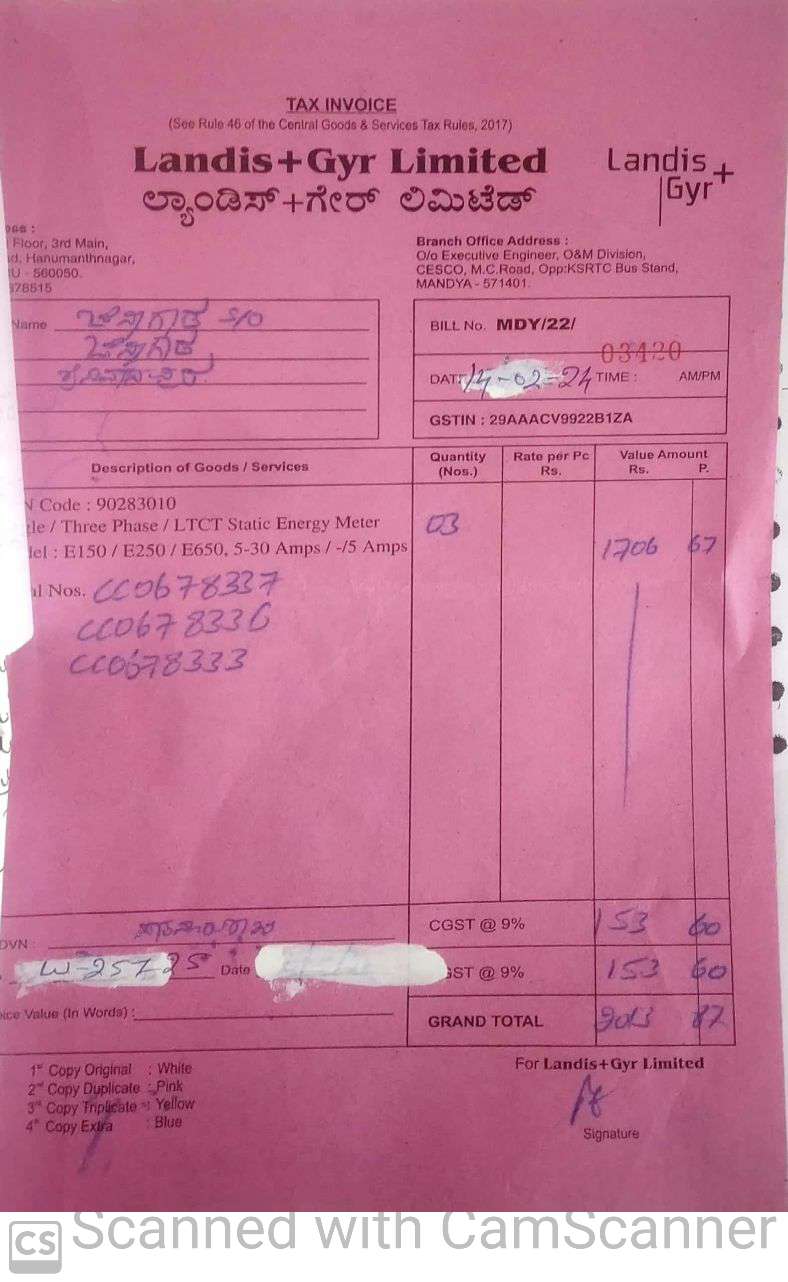 TAX INVOICE
(See Rule 46 of the Central Goods & Services Tax Rules, 2017)
Landis+Gyr Limited
ಲ್ಯಾಂಡಿಸ್+ಗೇರ್ ಲಿಮಿಟೆಡ್
Landis
Gyr+
Floor, 3rd Main,
Hanumanthnagar,
U - 560050.
78515
Branch Office Address :
O/o Executive Engineer, O&M Division,
CESCO, M.C.Road, Opp:KSRTC Bus Stand,
MANDYA - 571401.
Name S/O
BILL No. MDY/22/
03420
DATE 14-02-24 TIME : AM/PM
GSTIN : 29AAACV9922B1ZA
Description of Goods / Services
Quantity (Nos.)
Rate per Pc Rs.
Value Amount Rs. P.
Code : 90283010
/ Three Phase / LTCT Static Energy Meter
03
: E150 / E250 / E650, 5-30 Amps / -/5 Amps
1706 67
Nos. CC0678337
CC0678336
CC0678333
DVN :
CGST @ 9% 153 60
W-25725 Date
GST @ 9% 153 60
Value (In Words) :
GRAND TOTAL 2013 87
1st Copy Original : White
2nd Copy Duplicate : Pink
3rd Copy Triplicate : Yellow
4th Copy Extra : Blue
For Landis+Gyr Limited
Signature
CS Scanned with CamScanner